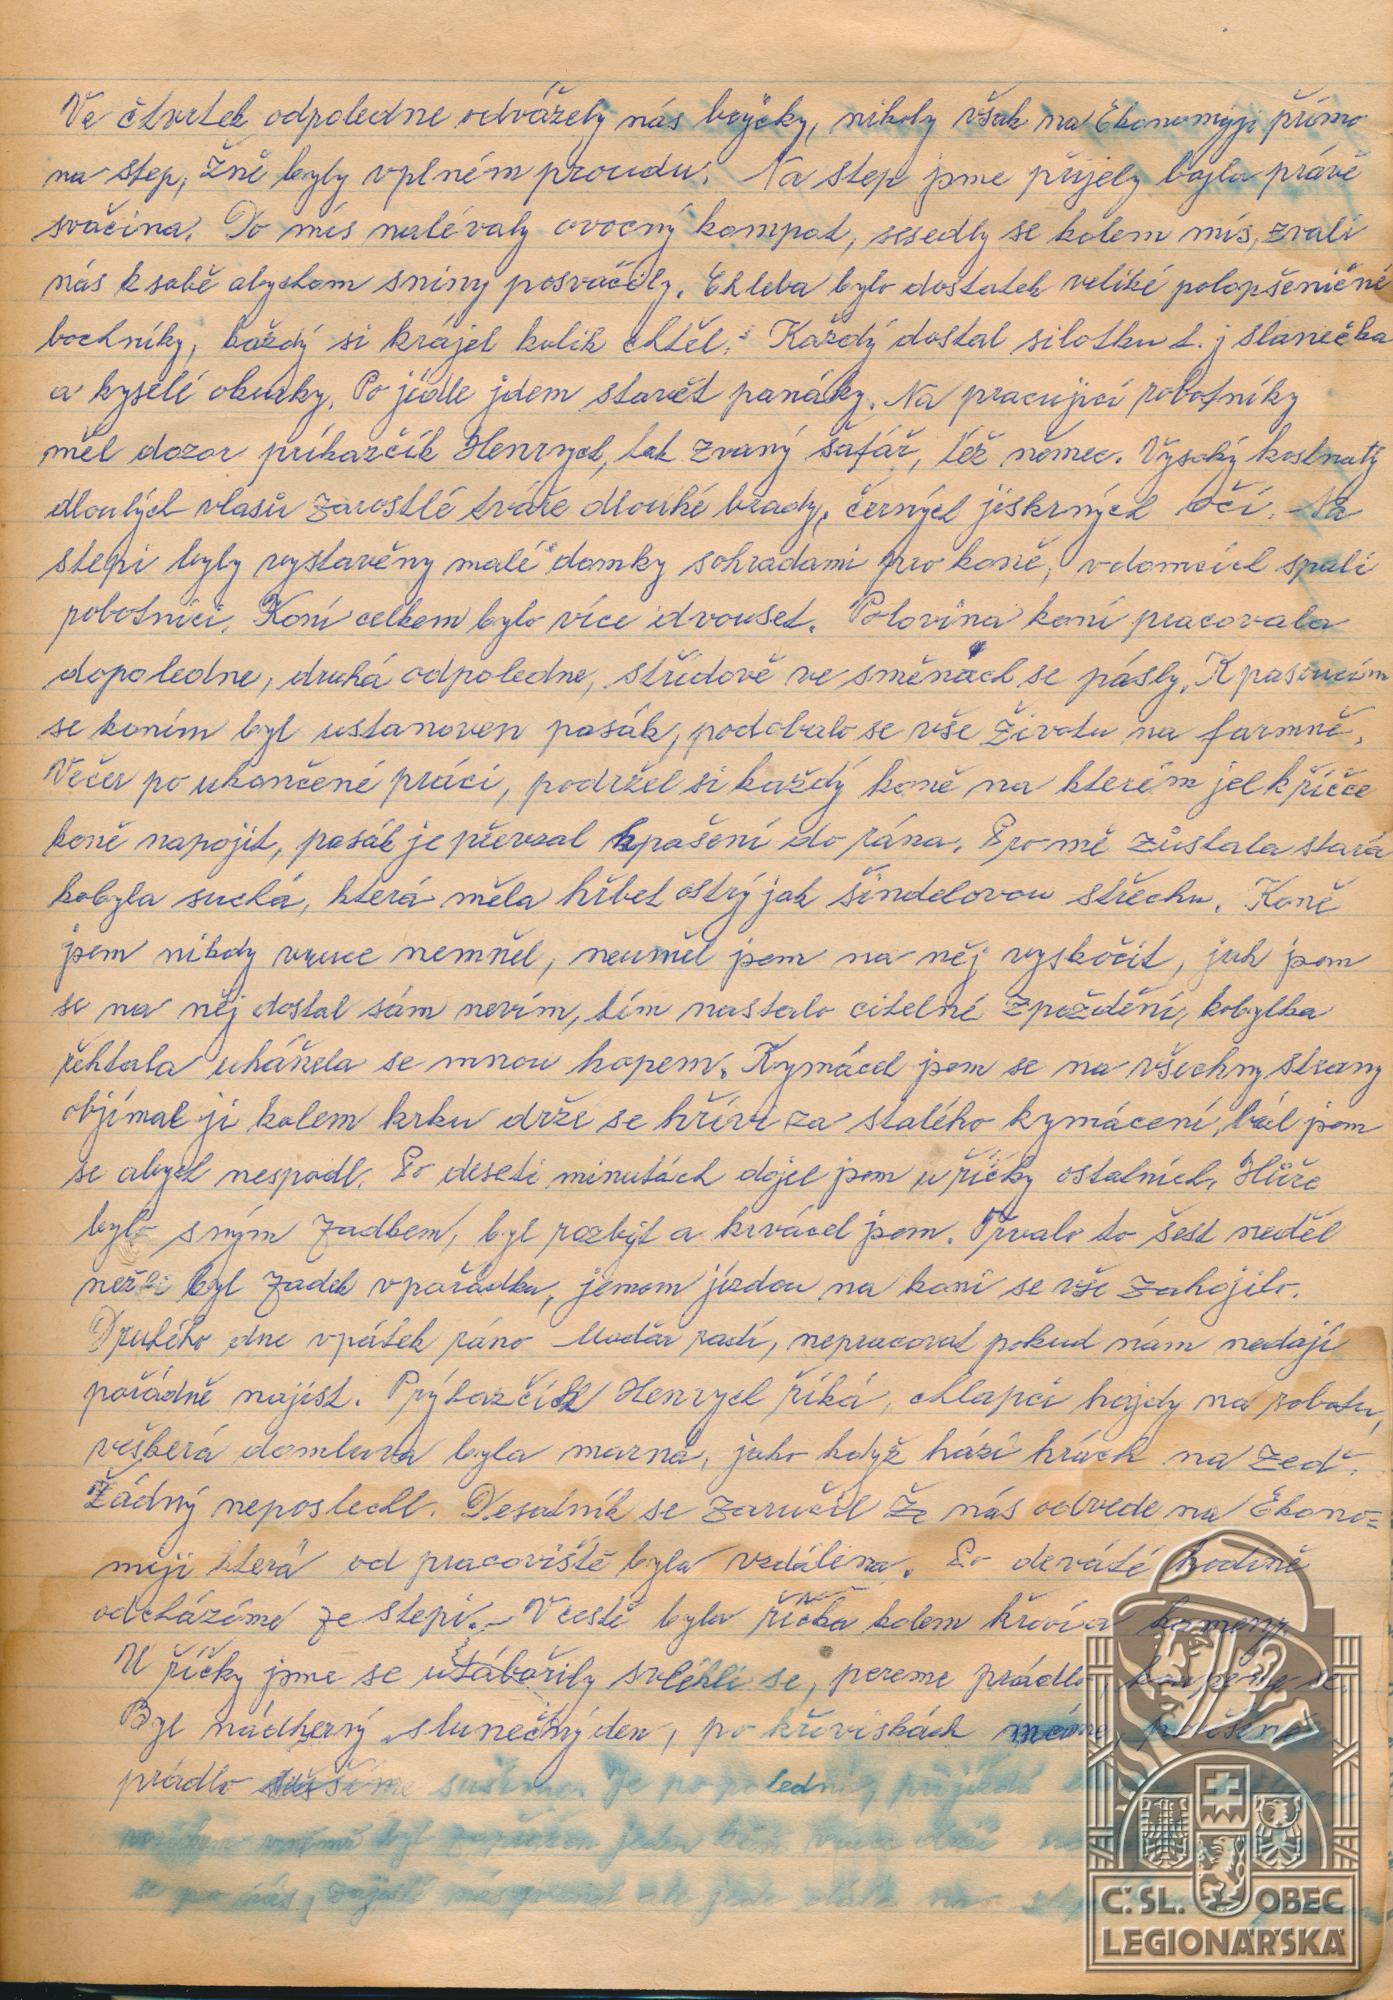 Ve čtvrtek odpoledne odvážely nás bryčky, nikoly však na Ekonomyji přímo
na step, žně byly vplném proudu. Na step jsme přijely byla právě
sváčina. Do mís nalévaly ovocný kompot, sesedly se kolem mís, zvali
nás k sobě abychom snimy posvačily. Chleba bylo dostatek veliké polopšeničné
bochníky, každý si krájel kolik chtěl. Každý dostal silotku t. j slanečka
a kyselé okurky. Po jídle jdem stavět panáky. Na pracujicí robotníky
měl dozor príkazčík Henrych, tak zvaný šafář, též němec. Vysoký kostnatý
dlouhých vlasů zarostlé tváře dlouhé brady, černých jiskrných očí. Na
stepi byly vystavěny malé domky sohradami pro koně, vdomcích spali
robotnici. Koní celkem bylo více dvouset. Polovina koní pracovala
dopoledne, druhá odpoledne, střídově ve směnách se pásly. K pasoucím
se koním byl ustanoven pasák, podobalo se vše životu na farmně.
Večer po ukončené práci, podržel si každý koně na kterém jel k říčce
koně napojit, pasák je převzal kpašení do rána. Pro mě zůstala stará
kobyla suchá, která měla hřbet ostrý jak šindelovou střechu. Koně
jsem nikdy vruce nemněl, neuměl jsem na něj vyskočit, jak jsem
se na něj dostal sám nevím, tím nastalo citelné zpoždění, kobylka
řehtala uháněla se mnou hopem. Kymácel jsem se na všechny strany
objímal ji kolem krku drže se hřívi za stalého kymácení, bál jsem
se abych nespadl. Po deseti minutách dojel jsem u říčky ostatních. Hůře
bylo sným zadkem, byl rozbýt a krvácel jsem. Trvalo to šest neděl
nežli byl zadek vpořádku, jenom jízdou na koni se vše zahojilo.
Druhého dne vpátek ráno Maďar radí, nepracovat pokud nám nedají
pořádně najíst. Prýkazčík Henrych říká, chlapci hajdy na robotu,
veškerá domluva byla marná, jako když hází hrách na zeď.
Žádný neposlechl. Desatník se zaručil že nás odvede na Ekono=
myji která od pracoviště byla vzdálena. Po deváté hodině
odcházíme ze stepi. Vcestě byla říčka kolem křoví a kameny.
U říčky jsme se utábořily svlékli se, pereme prádlo, koupeme se.
Byl nádherný slunečný den, po křoviskách máme
prádlo sušíme sušíme. Je po poledni, přijíždí
byl zapřažen jeden kůň
se po nás, zajisté